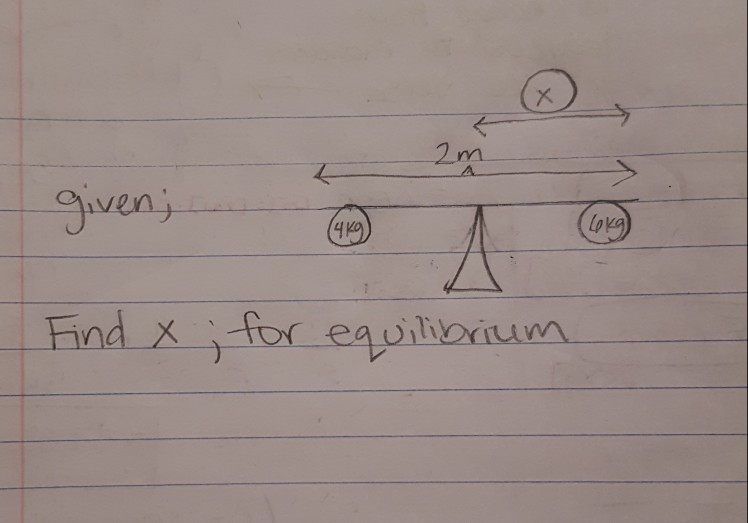 x
2m
given;
4kg
6kg
Find x; for equilibrium